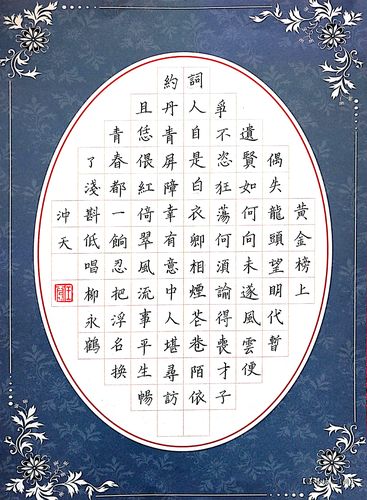 黃金榜上
偶失龍頭望明代暫
遺賢如何向未遂風雲便
爭不恣狂蕩何須論得喪才子
詞人自是白衣卿相煙花巷陌依
約丹青屏障幸有意中人堪尋訪
且恁偎紅倚翠風流事平生暢
青春都一餉忍把浮名換
了淺斟低唱柳永鶴
沖天